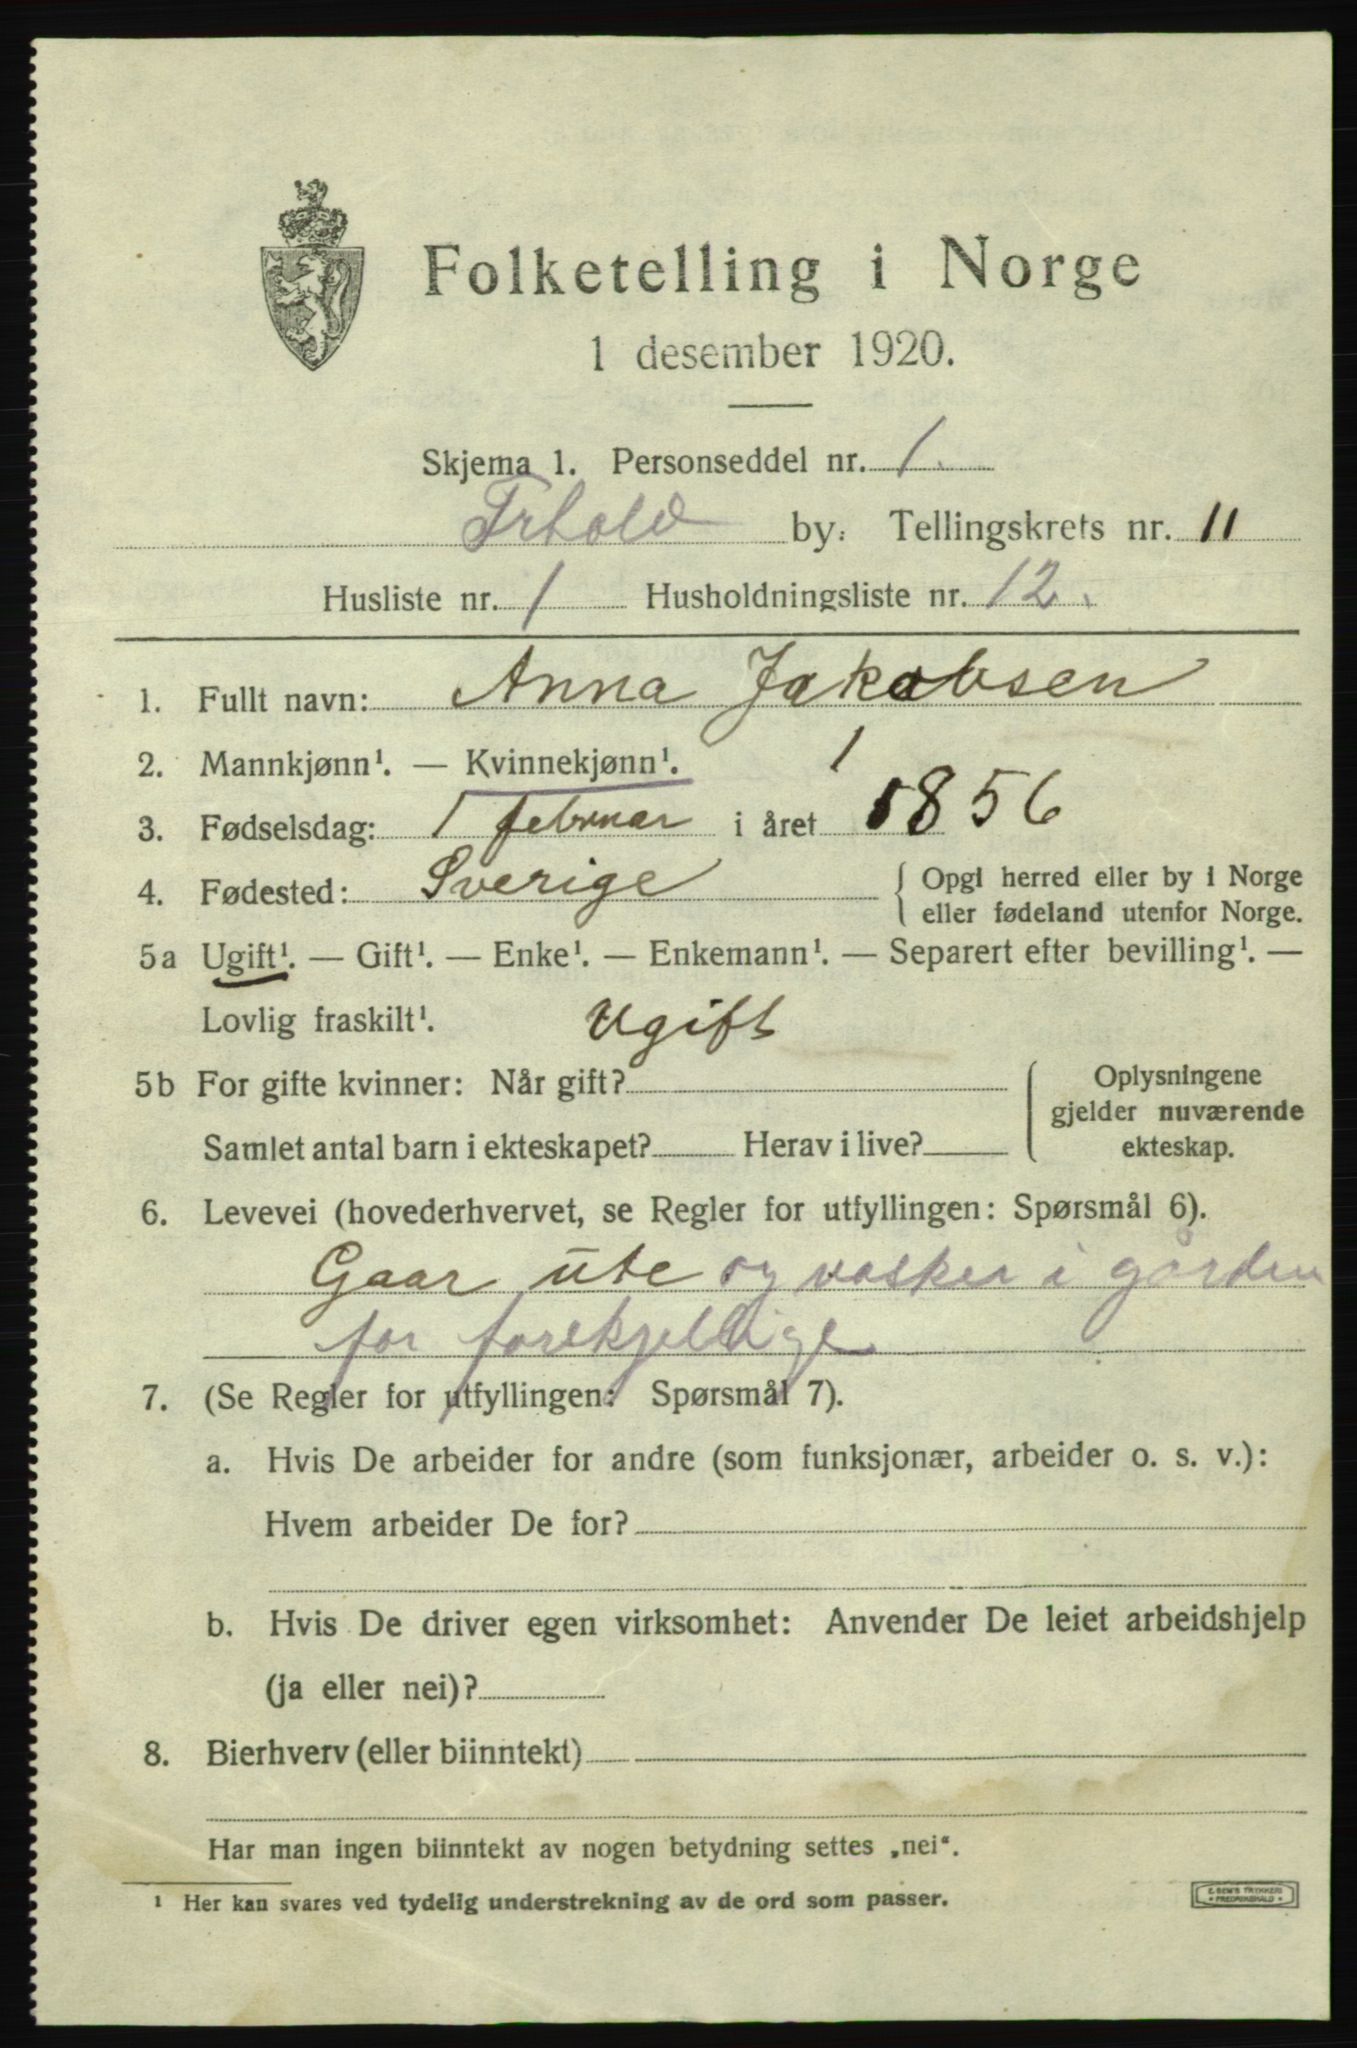 Folketelling i Norge
1 desember 1920.
Skjema 1. Personseddel nr. 1.
Frhald by. Tellingskrets nr. 11
Husliste nr. 1 Husholdningsliste nr. 12.
1. Fullt navn: Anna Jakobsen
2. Mannkjønn¹. — Kvinnekjønn¹.
3. Fødselsdag: 1 februar i året 1856
4. Fødested: Sverige { Opgi herred eller by i Norge
eller fødeland utenfor Norge.
5a Ugift¹. — Gift¹. — Enke¹. — Enkemann¹. — Separert efter bevilling¹. —
Lovlig fraskilt¹. Ugift
5b For gifte kvinner: Når gift? { Oplysningene
gjelder nuværende
Samlet antal barn i ekteskapet? Herav i live? ekteskap.
6. Levevei (hovederhvervet, se Regler for utfyllingen: Spørsmål 6).
Gaar ute og vasker i gården
for forskjellige
7. (Se Regler for utfyllingen: Spørsmål 7).
a. Hvis De arbeider for andre (som funksjonær, arbeider o. s. v.):
Hvem arbeider De for?
b. Hvis De driver egen virksomhet: Anvender De leiet arbeidshjelp
(ja eller nei)?
8. Bierhverv (eller biinntekt)
Har man ingen biinntekt av nogen betydning settes „nei“.
¹ Her kan svares ved tydelig understrekning av de ord som passer.